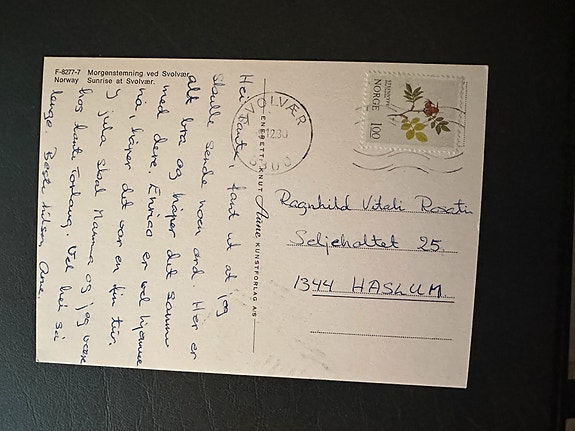 F-8277-7 Morgenstemning ved Svolvær.
Norway Sunrise at Svolvær.
Hei Tante, fant ut at jeg
skulle sende noen ord. Her er
alt bra og håper det samme
med dere. Enrico er vel hjemme
nå, håper det var en fin tur.
I jula skal Mamma og jeg være
hos tante Torlaug. Vel hei så
lenge. Beste hilsen Arne.
ENERETT: KNUT Aune KUNSTFORLAG A/S
SVOLVÆR
12.80
8300
NORGE 100
Ragnhild Vitali Rosatin
Seljeholtet 25.
1344 HASLUM.